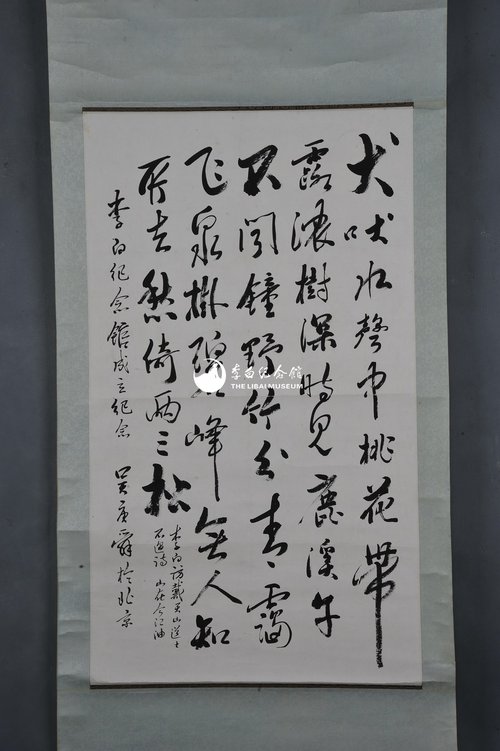 犬吠水聲中桃花帶
露濃樹深時見鹿溪午
不闻鐘野竹分青靄
飞泉掛碧峰無人知
所去愁倚两三松
李白访戴天山道士
不遇诗 山在今江油
李白纪念館成立纪念 吴庚舜於北京
李白纪念馆
THE LIBAI MUSEUM